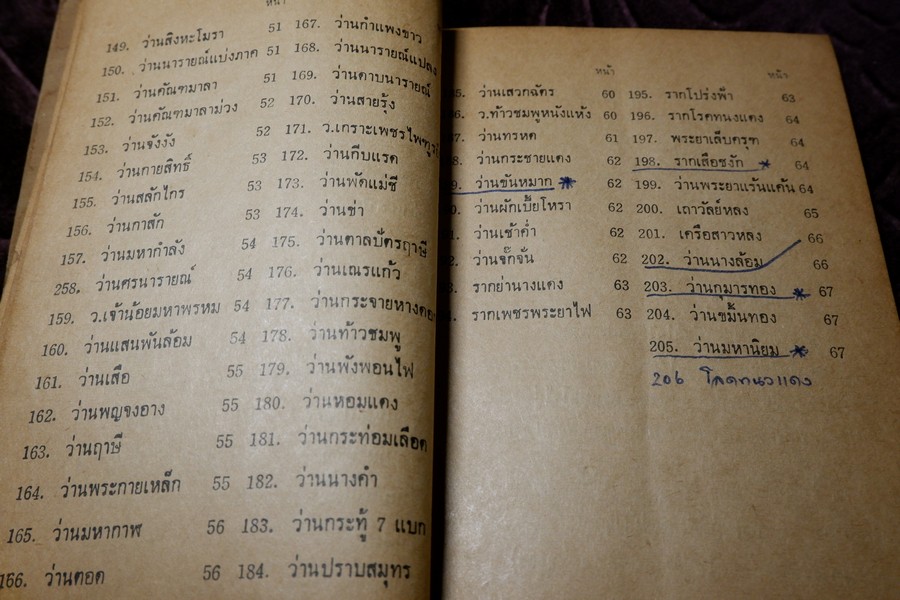 หน้า
149. ว่านสิงหะโมรา 51
150. ว่านนารายณ์แบ่งภาค 51
151. ว่านคัณฑมาลา 51
152. ว่านคัณฑมาลาม่วง 52
153. ว่านจังงัง 52
154. ว่านกายสิทธิ์ 53
155. ว่านสลักไกร 53
156. ว่านกาสัก 53
157. ว่านมหากำลัง 54
258. ว่านศรนารายณ์ 54
159. ว.เจ้าน้อยมหาพรหม 54
160. ว่านแสนพันล้อม 54
161. ว่านเสือ 55
162. ว่านพญจงอาง 55
163. ว่านฤาษี 55
164. ว่านพระกายเหล็ก 55
165. ว่านมหากาฬ 56
166. ว่านตอด 56
167. ว่านกำแพงขาว
168. ว่านนารายณ์แปลง
169. ว่านดาบนารายณ์
170. ว่านสายรุ้ง
171. ว.เกราะเพชรไพฑูรย์
172. ว่านกีบแรด
173. ว่านพัดแม่ชี
174. ว่านข่า
175. ว่านตาลปัตรฤาษี
176. ว่านเณรแก้ว
177. ว่านกระจายหางดอก
178. ว่านท้าวชมพู
179. ว่านพังพอนไฟ
180. ว่านหอมแดง
181. ว่านกระท่อมเลือด
182. ว่านนางคำ
183. ว่านกระทู้ 7 แบก
184. ว่านปราบสมุทร
หน้า
ว่านเสวกฉัตร 60
ว.ท้าวชมพูหนังแห้ง 60
ว่านทรหด 61
ว่านกระชายแดง 62
ว่านขันหมาก 62
ว่านผักเบี้ยโหรา 62
ว่านเช้าค่ำ 62
ว่านจั๊กจั่น 62
รากย่านางแดง 63
รากเพชรพระยาไฟ 63
หน้า
195. รากโปร่งฟ้า 63
196. รากโรคทนงแดง 64
197. พระยาเล็บครุฑ 64
198. รากเสือชงัก * 64
199. ว่านพระยาแร้นแค้น 64
200. เถาวัลย์หลง 65
201. เครือสาวหลง 66
202. ว่านนางล้อม 66
203. ว่านกุมารทอง * 67
204. ว่านขมิ้นทอง 67
205. ว่านมหานิยม * 67
206 โลดทนงแดง